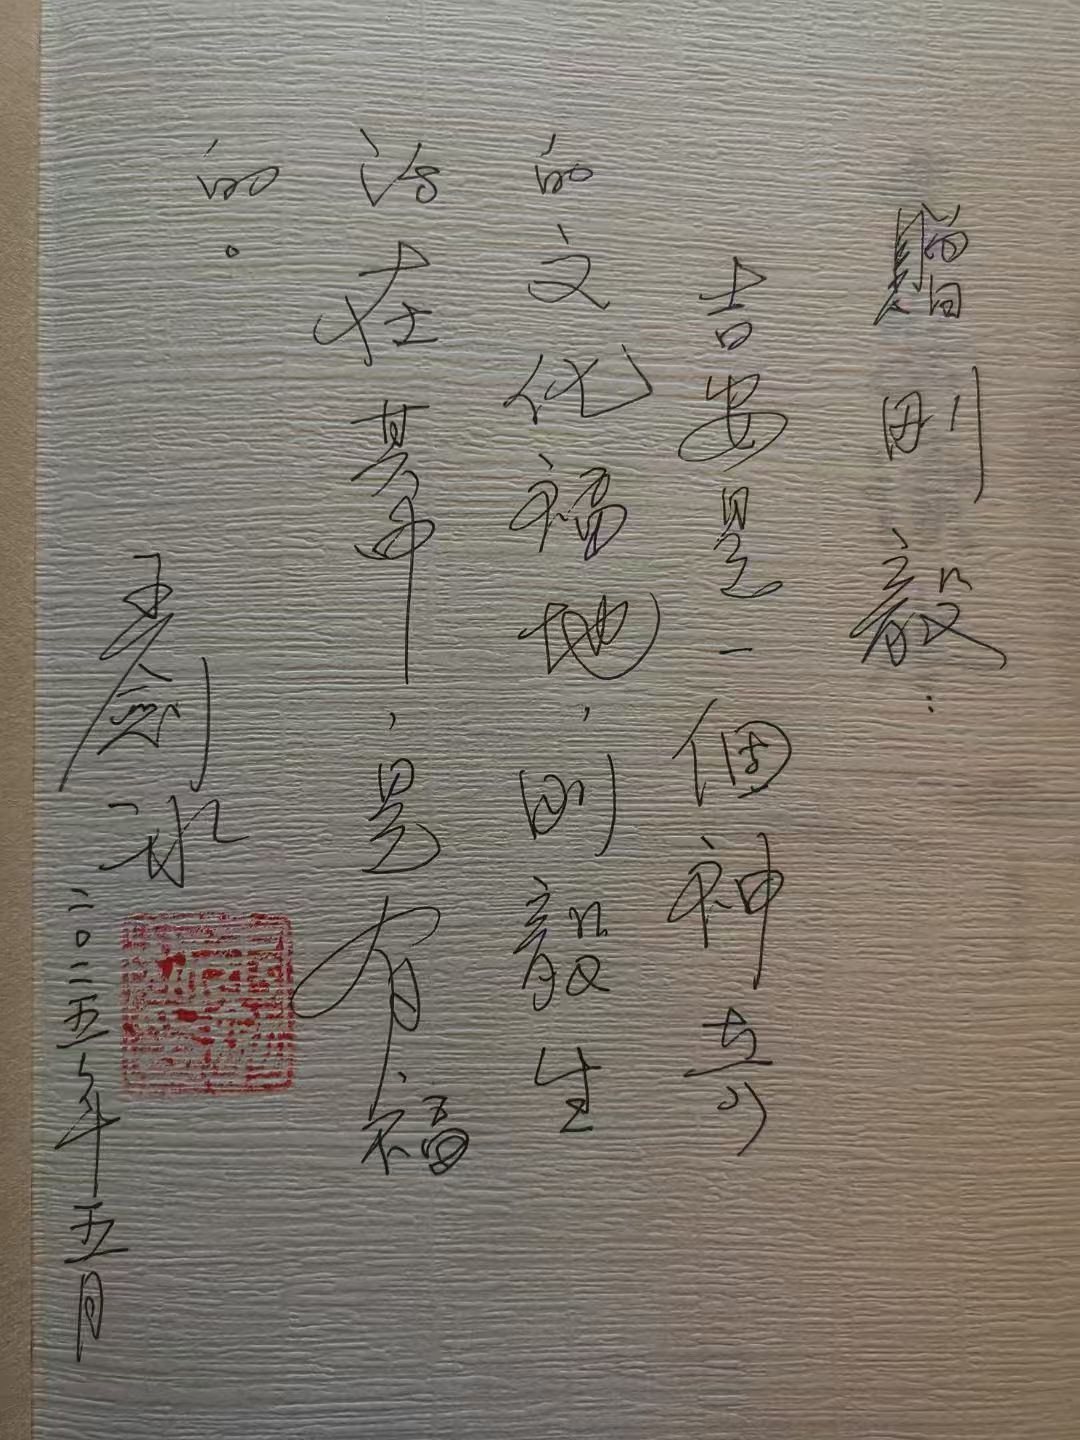 赠刚毅：
吉安是一個神奇
的文化福地，刚毅生
活在其中，是有福
的。
王剑冰
二〇二五年五月